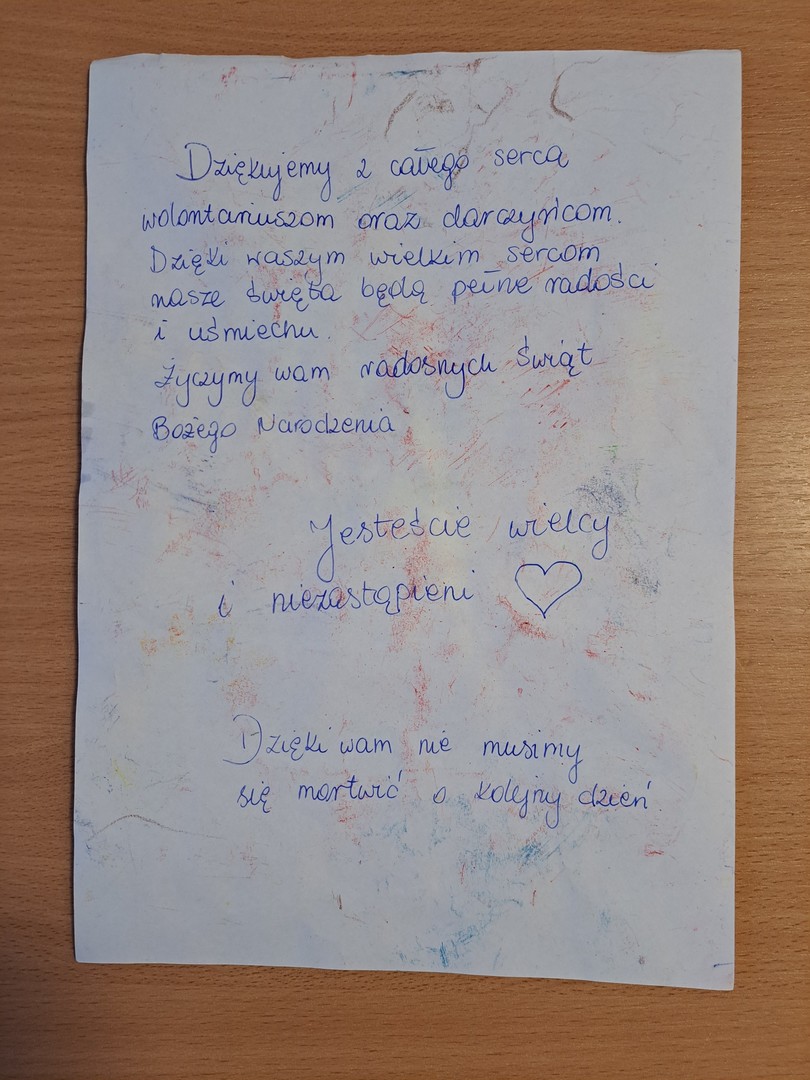 Dziękujemy z całego serca
wolontariuszom oraz darczyńcom.
Dzięki waszym wielkim sercom
nasze święta będą pełne radości
i uśmiechu.
Życzymy wam radosnych Świąt
Bożego Narodzenia
Jesteście wielcy
i niezastąpieni ♡
Dzięki wam nie musimy
się martwić o kolejny dzień